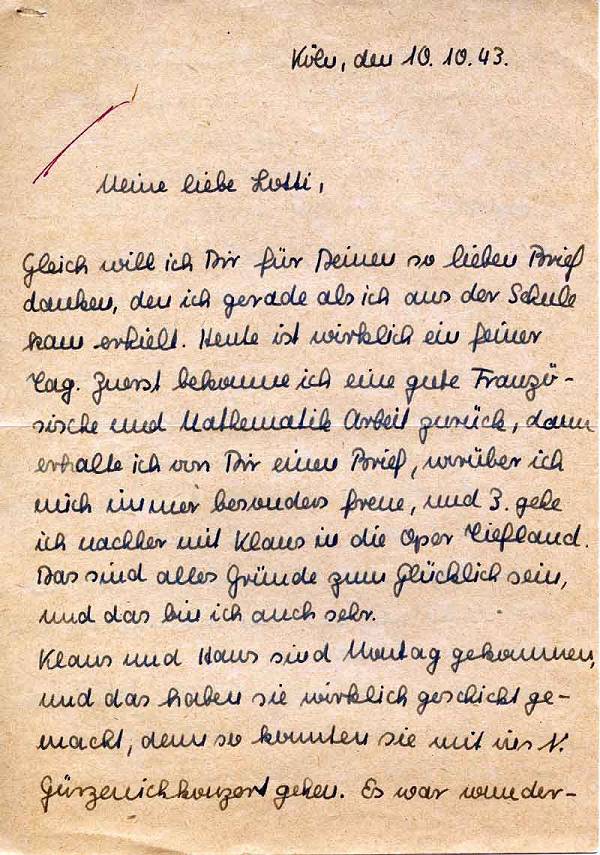 Köln, den 10.10.43.
Meine liebe Lotti,
Gleich will ich Dir für Deinen so lieben Brief
danken, den ich gerade als ich aus der Schule
kam erhielt. Heute ist wirklich ein feiner
Tag. Zuerst bekomme ich eine gute Franzö-
sische und Mathematik Arbeit zurück, dann
erhalte ich von Dir einen Brief, worüber ich
mich immer besonders freue, und 3. gehe
ich nachher mit Klaus in die Oper Tiefland.
Das sind alles Gründe zum Glücklich sein,
und das bin ich auch sehr.
Klaus und Hans sind Montag gekommen,
und das haben sie wirklich geschickt ge-
macht, denn so konnten sie mit ins
Gürzenichkonzert gehen. Es war wunder-